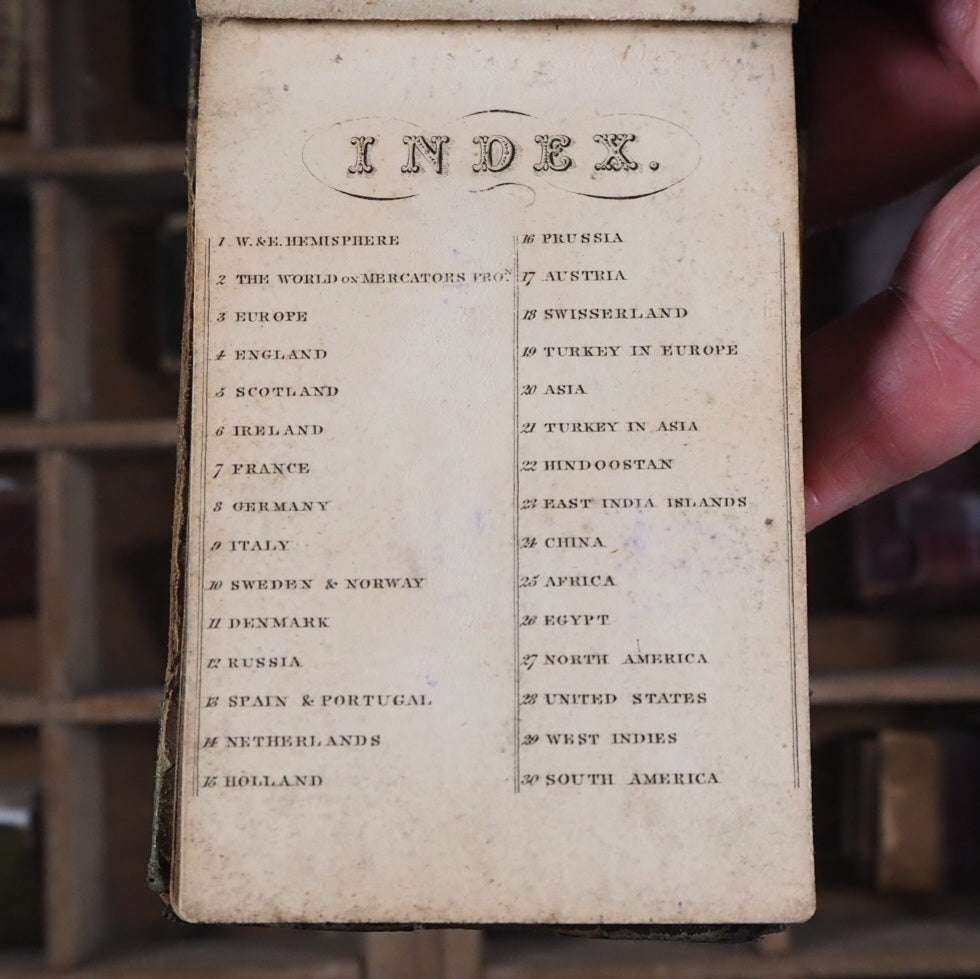 INDEX.
1 W. & E. HEMISPHERE
2 THE WORLD on MERCATORS PRO.N
3 EUROPE
4 ENGLAND
5 SCOTLAND
6 IRELAND
7 FRANCE
8 GERMANY
9 ITALY
10 SWEDEN & NORWAY
11 DENMARK
12 RUSSIA
13 SPAIN & PORTUGAL
14 NETHERLANDS
15 HOLLAND
16 PRUSSIA
17 AUSTRIA
18 SWISSERLAND
19 TURKEY IN EUROPE
20 ASIA
21 TURKEY IN ASIA
22 HINDOOSTAN
23 EAST INDIA ISLANDS
24 CHINA
25 AFRICA
26 EGYPT
27 NORTH AMERICA
28 UNITED STATES
29 WEST INDIES
30 SOUTH AMERICA